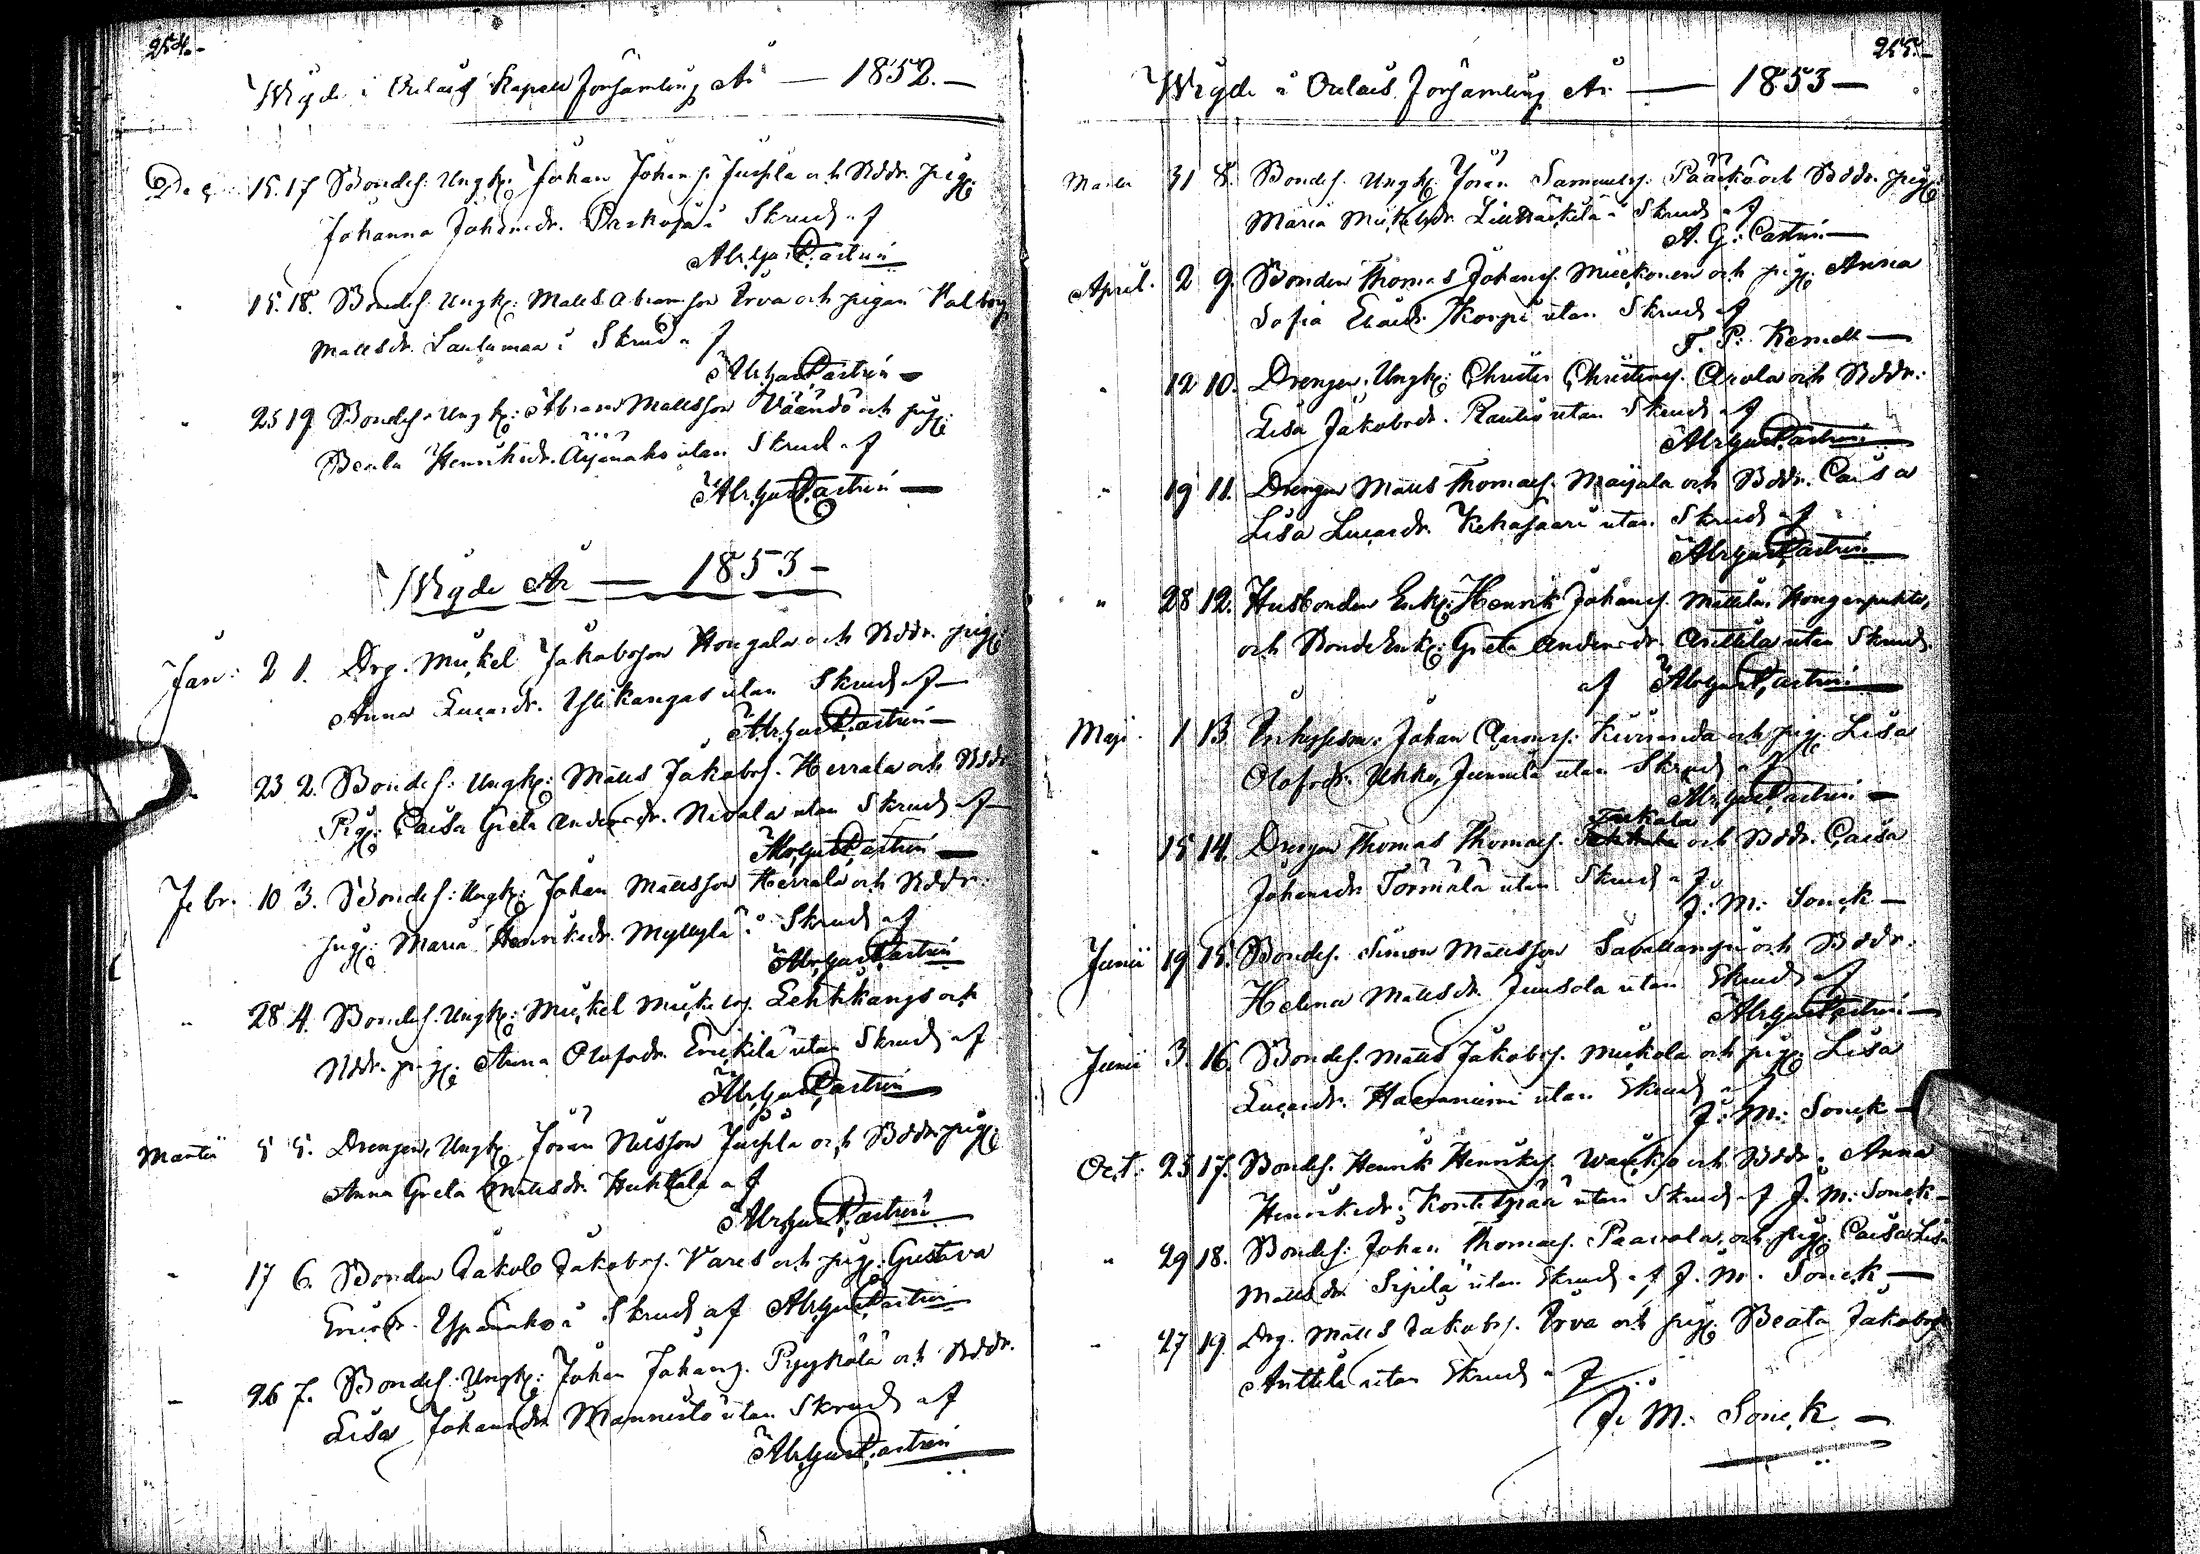 254.
Wigde i Oulais Kapell Församling År — 1852. —
Dec. 15. 17 Bondes. Ungk: Johan Johans. Juspla och Bddr. pig:
Johanna Johansdr. Paskoja i Skrud af
Abr. Gust. Castrén
" 15. 18. Bondes. Ungk: Matts Abramsson Erva och pigan Valborg
Mattsdr. Lautamaa i Skrud af
Abr. Gust. Castrén —
" 25 19 Bondes. Ungk: Abram Mattsson Väändö och pig:
Beata Henriksdr. Äijänaho utan Skrud af
Abr. Gust. Castrén —
Wigde År — 1853 —
Jan: 2 1. Drg. Mickel Jakobsson Hongala och Bddr. pig:
Anna Lucasdr. Ylikangas utan Skrud af —
Abr. Gust. Castrén —
23 2. Bondes: Ungk: Matts Jakobs. Herrala och Bddr.
Pig: Caisa Greta Andersdr. Nivala utan Skrud af —
Abr. Gust. Castrén —
Febr. 10 3. Bondes: Ungk: Johan Mattsson Herrala och Bddr:
pig: Maria Henriksdr. Myllylä i Skrud af
Abr. Gust. Castrén
" 28 4. Bondes. Ungk: Mickel Mickels. Lehtikangs och
Bddr. pig: Anna Olofsdr. Erickilä utan Skrud af
Abr. Gust. Castrén
Martii 5 5. Drengen, Ungk. Jöran Nilsson Juspla och Bddr. pig:
Anna Greta Mattsdr. Huhtala af
Abr. Gust. Castrén
" 17 6. Bonden Jakob Jakobs. Vares och pig: Gustava
Ericsdr. Yppänaho i Skrud af Abr. Gust. Castrén
— 26 7. Bondes. Ungk: Johan Johans. Pyykölä och Bddr.
Lisa Johansdr. Mannistö utan Skrud af
Abr. Gust. Castrén
255.
Wigde i Oulais Församling År — 1853 —
Martii 31 8. Bondes. Ungk: Jöran Samuels. Päärkö och Bddr. pig:
Maria Mickelsdr. i Skrud af
A. G. Castrén —
April. 2 9. Bonden Thomas Johans. Mickonen och pig: Anna
Sofia Eliaedr. Korpi utan Skrud af
F. P. Kemell —
" 12 10. Drengen, Ungk: Christer Christers. Arola och Bddr:
Lisa Jakobsdr. Rautio utan Skrud af
Abr. Gust. Castrén
" 19 11. Drengen Matts Thomaes. Maijala och Bddr. Caisa
Lisa Lucasdr. Kekajaari utan Skrud af
Abr. Gust. Castrén
" 28 12. Husbonden Enkl: Henrik Johans. Mattila, Honganpuhto,
och Bonde Enk: Greta Andersdr. Anttila utan Skrud
af Abr. Gust. Castrén
Maji. 1 13 Inhysesm: Johan Aarons. Kiviranda och pig: Lisa
Olofsdr. Uhko, Junnila utan Skrud af
Abr. Gust. Castrén —
Tuskala
" 15 14. Drengen Thomas Thomaes. och Bddr. Caisa
Johansdr. Törmälä utan Skrud af
J. M. Sonck —
Junii 19 15. Bondes. Simon Mattsson Savallampi och Bddr.
Helena Mattsdr. Juusola utan Skrud af
Abr. Gust. Castrén —
Junii 3. 16. Bondes. Matts Jakobs. Mickola och pig: Lisa
Lucasdr. Haeranimi utan Skrud af
J. M. Sonck —
Oct: 25 17. Bondes. Henrik Henriks. Warikso och Bddr: Anna
Henriksdr: Kontitpää utan Skrud af J. M. Sonck —
" 29 18. Bondes: Johan Thomaes. Paavola, och pig: Caisa Lisa
Mattsdr. Sipilä utan Skrud af J. M. Sonck —
" 27 19. Drg. Matts Jakobs. Erva och pig: Beata Jakobsdr
Anttila utan Skrud af
J. M. Sonck —